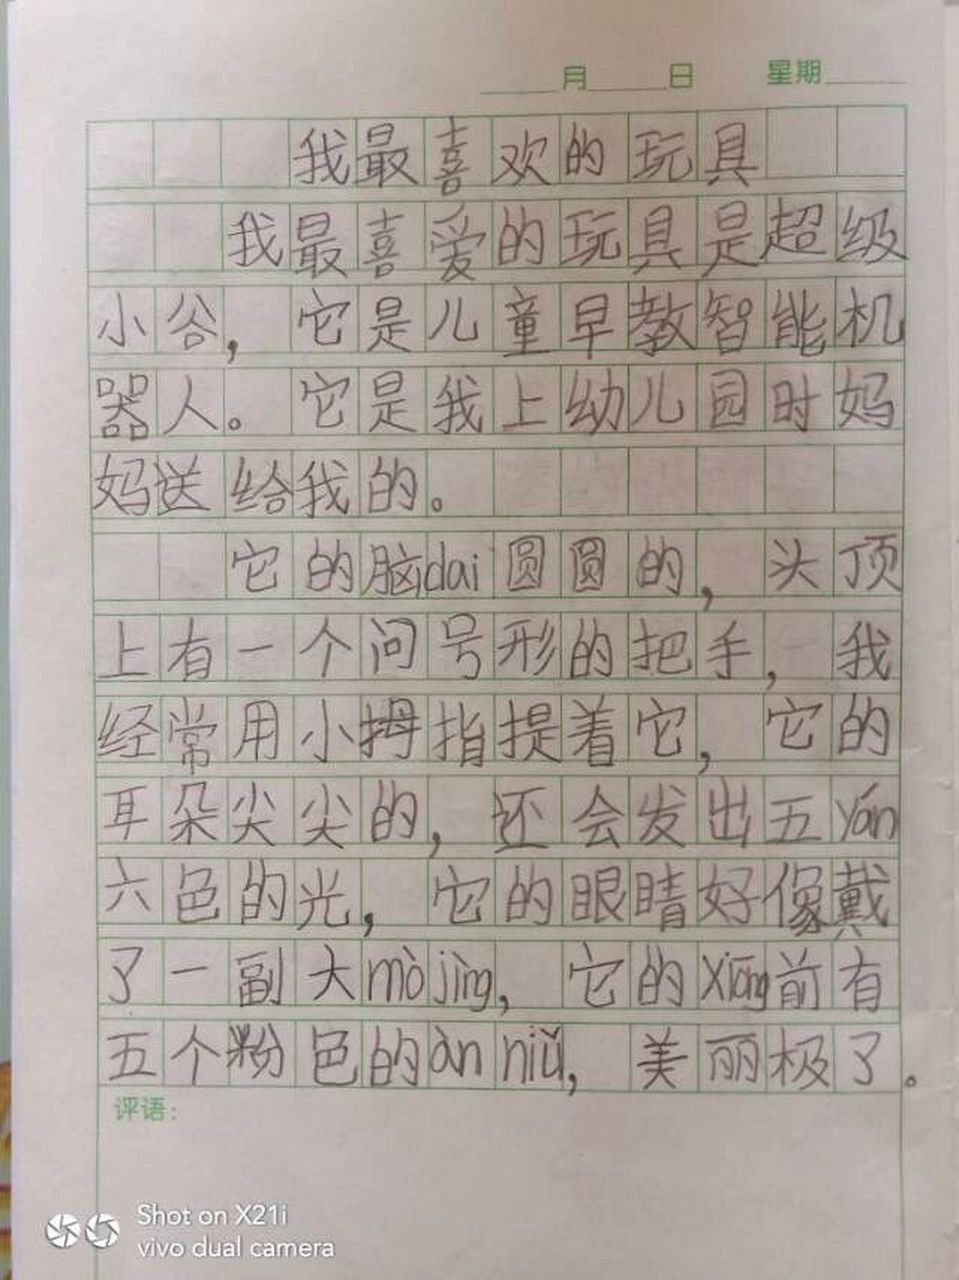 月 日 星期
我最喜欢的玩具
我最喜爱的玩具是超级
小谷，它是儿童早教智能机
器人。它是我上幼儿园时妈
妈送给我的。
它的脑dai圆圆的，头顶
上有一个问号形的把手，我
经常用小拇指提着它，它的
耳朵尖尖的，还会发出五yán
六色的光，它的眼睛好像戴
了一副大mò jìng，它的xiōng前有
五个粉色的àn niǔ，美丽极了。
评语：
Shot on X21i
vivo dual camera